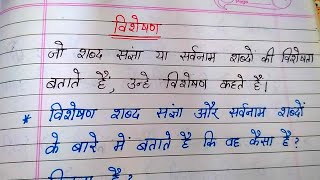 विशेषण
जो शब्द संज्ञा या सर्वनाम शब्दों की विशेषता
बताते हैं, उन्हे विशेषण कहते है।
* विशेषण शब्द संज्ञा और सर्वनाम शब्दों
के बारे में बताते हैं कि वह कैसा है?